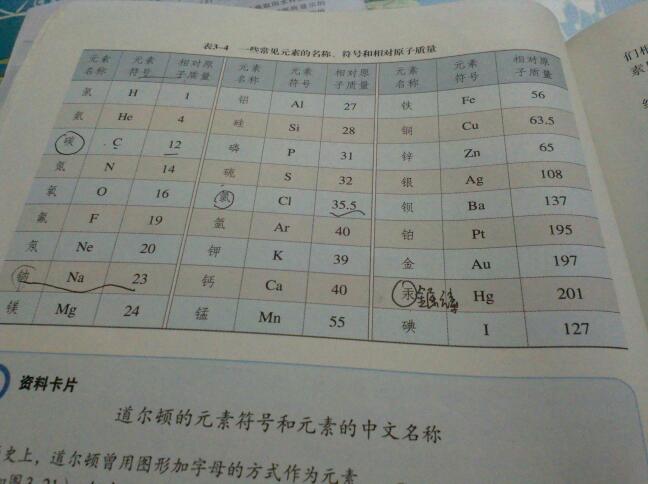 表3-4 一些常见元素的名称、符号和相对原子质量
元素名称 元素符号 相对原子质量 元素名称 元素符号 相对原子质量 元素名称 元素符号 相对原子质量
氢 H 1 铝 Al 27 铁 Fe 56
氦 He 4 硅 Si 28 铜 Cu 63.5
碳 C 12 磷 P 31 锌 Zn 65
氮 N 14 硫 S 32 银 Ag 108
氧 O 16 氯 Cl 35.5 钡 Ba 137
氟 F 19 氩 Ar 40 铂 Pt 195
氖 Ne 20 钾 K 39 金 Au 197
钠 Na 23 钙 Ca 40 汞 Hg 201
镁 Mg 24 锰 Mn 55 碘 I 127
资料卡片
道尔顿的元素符号和元素的中文名称
史上，道尔顿曾用图形加字母的方式作为元素
们相